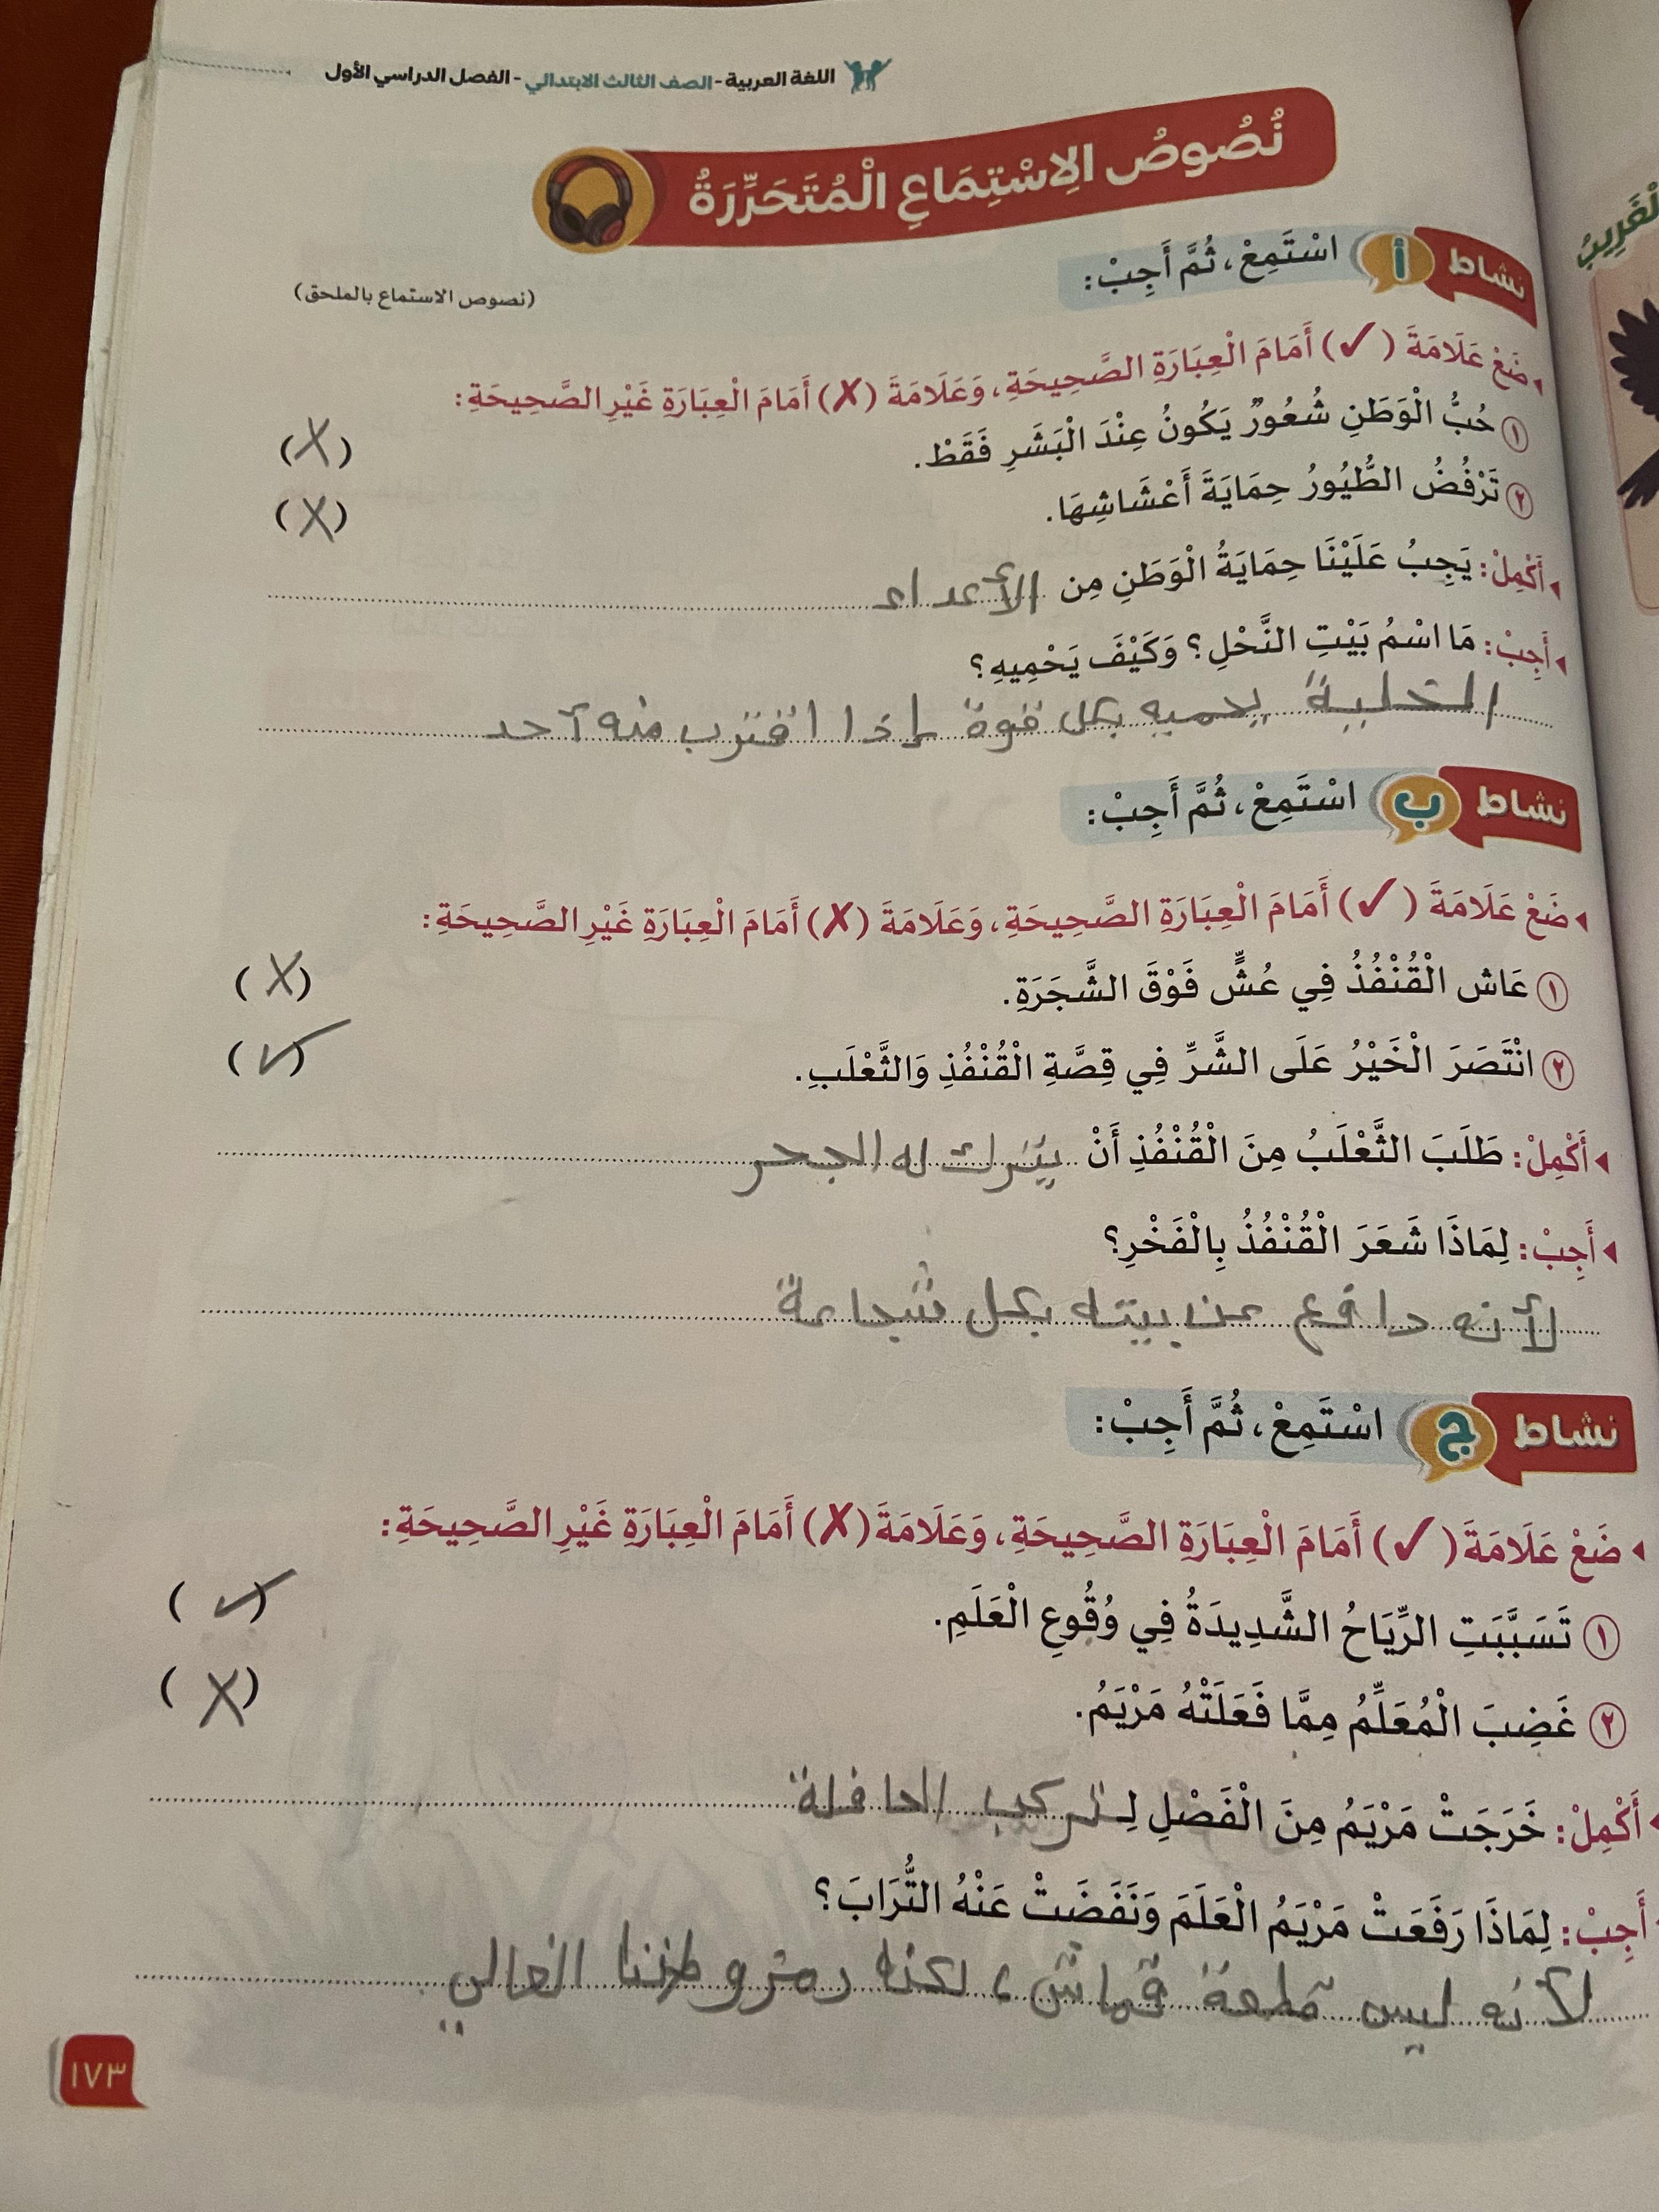 اللغة العربية - الصف الثالث الابتدائي - الفصل الدراسي الأول
نُصُوصُ الِاسْتِمَاعِ الْمُتَحَرِّرَةُ
نشاط أ اسْتَمِعْ، ثُمَّ أَجِبْ:
(نصوص الاستماع بالملحق)
ضَعْ عَلَامَةَ (✓) أَمَامَ الْعِبَارَةِ الصَّحِيحَةِ، وَعَلَامَةَ (✗) أَمَامَ الْعِبَارَةِ غَيْرِ الصَّحِيحَةِ:
١ حُبُّ الْوَطَنِ شُعُورٌ يَكُونُ عِنْدَ الْبَشَرِ فَقَطْ. (✗)
٢ تَرْفُضُ الطُّيُورُ حِمَايَةَ أَعْشَاشِهَا. (✗)
أَكْمِلْ: يَجِبُ عَلَيْنَا حِمَايَةُ الْوَطَنِ مِن الأعداء
أَجِبْ: مَا اسْمُ بَيْتِ النَّحْلِ؟ وَكَيْفَ يَحْمِيهِ؟
الخلية يحميه بكل قوة إذا اقترب منه أحد
نشاط ب اسْتَمِعْ، ثُمَّ أَجِبْ:
ضَعْ عَلَامَةَ (✓) أَمَامَ الْعِبَارَةِ الصَّحِيحَةِ، وَعَلَامَةَ (✗) أَمَامَ الْعِبَارَةِ غَيْرِ الصَّحِيحَةِ:
١ عَاش الْقُنْفُذُ فِي عُشٍّ فَوْقَ الشَّجَرَةِ. (✗)
٢ انْتَصَرَ الْخَيْرُ عَلَى الشَّرِّ فِي قِصَّةِ الْقُنْفُذِ وَالثَّعْلَبِ. (✓)
أَكْمِلْ: طَلَبَ الثَّعْلَبُ مِنَ الْقُنْفُذِ أَنْ يترك له الجحر
أَجِبْ: لِمَاذَا شَعَرَ الْقُنْفُذُ بِالْفَخْرِ؟
لأنه دافع عن بيته بكل شجاعة
نشاط ج اسْتَمِعْ، ثُمَّ أَجِبْ:
ضَعْ عَلَامَةَ (✓) أَمَامَ الْعِبَارَةِ الصَّحِيحَةِ، وَعَلَامَةَ (✗) أَمَامَ الْعِبَارَةِ غَيْرِ الصَّحِيحَةِ:
١ تَسَبَّبَتِ الرِّيَاحُ الشَّدِيدَةُ فِي وُقُوعِ الْعَلَمِ. (✓)
٢ غَضِبَ الْمُعَلِّمُ مِمَّا فَعَلَتْهُ مَرْيَمُ. (✗)
أَكْمِلْ: خَرَجَتْ مَرْيَمُ مِنَ الْفَصْلِ لِـ تركب الحافلة
أَجِبْ: لِمَاذَا رَفَعَتْ مَرْيَمُ الْعَلَمَ وَنَفَضَتْ عَنْهُ التُّرَابَ؟
لأنه ليس قطعة قماش، لكنه رمز وطننا الغالي
١٧٣